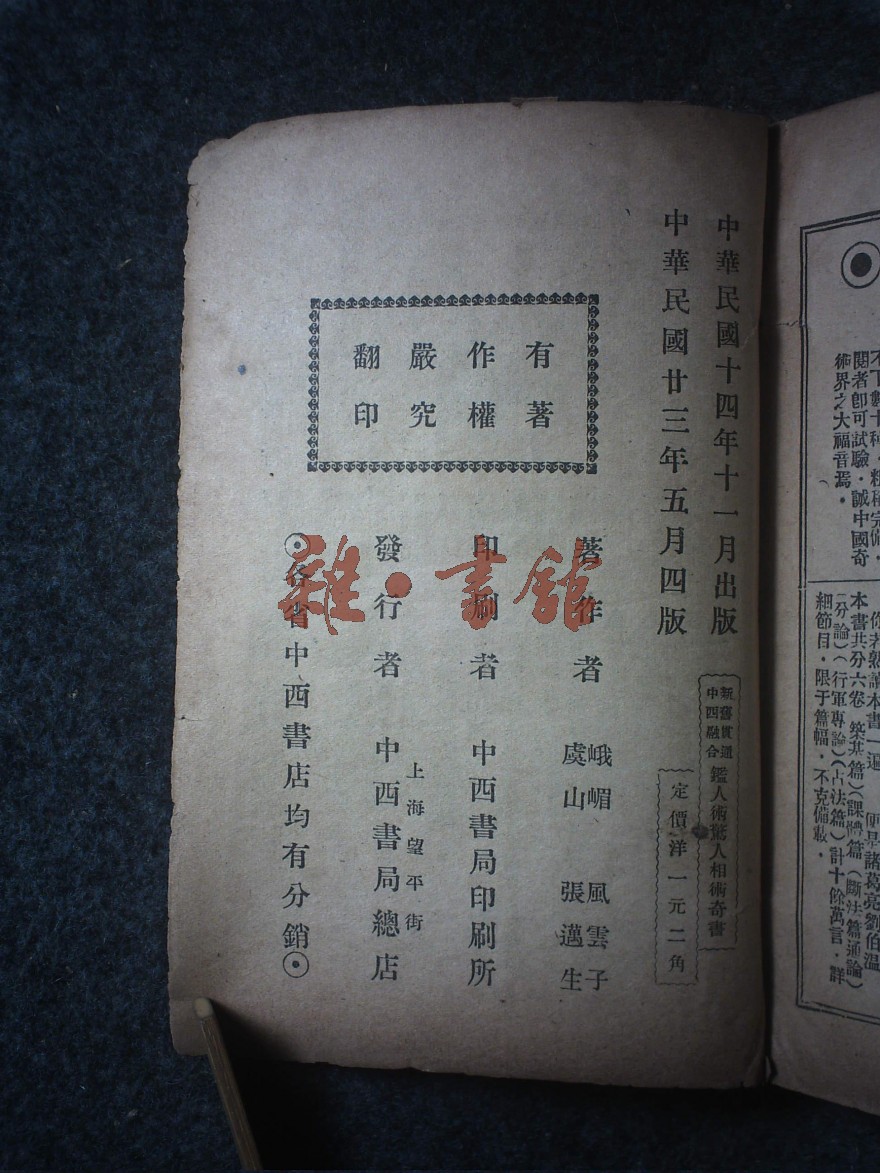 中華民國十四年十一月出版
中華民國廿三年五月四版
新舊貫通
中西融合
鑑人術驚人相術奇書
定價洋一元二角
有著
作權
嚴究
翻印
著作者
峨嵋 風雲子
虞山 張邁生
印刷者 中西書局印刷所
發行者
上海望平街
中西書局總店
各省中西書店均有分銷
雜·書館
閱者卽可試驗·誠中國奇
術界之大福音焉·
你若熟讀本書一遍
諸葛亮劉伯溫
本書共分六卷 築基篇)(課體篇(斷法篇通論)
二分論)(行軍專論)(占法篇)計十餘萬言·詳
細節目·限于篇幅·不克備載·